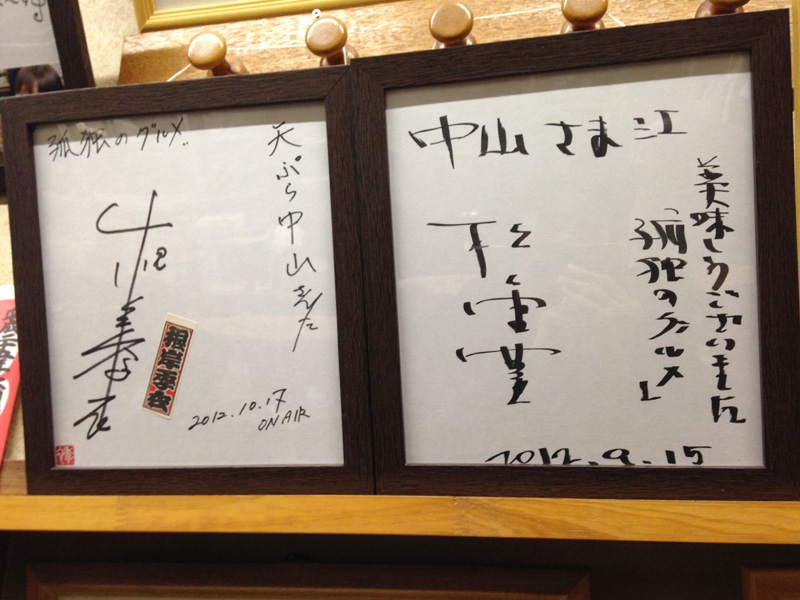 孤独のグルメ
天ぷら中山
根岸季衣
根岸季衣
2012.10.17
ON AIR
中山さま江
美味しうございました
「孤独のグルメ」
松重豊
2012.9.15